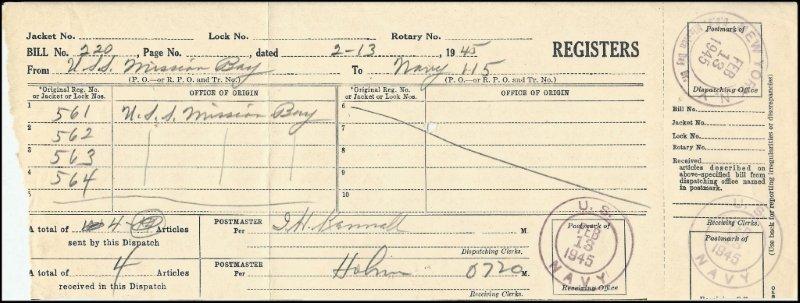 Jacket No. Lock No. Rotary No.
BILL No. 220, Page No. , dated 2-13 1945 REGISTERS
From U.S.S. Mission Bay To Navy 115
(P. O.—or R. P. O. and Tr. No.) (P. O.—or R. P. O. and Tr. No.)
*Original Reg. No. or Jacket or Lock Nos. OFFICE OF ORIGIN *Original Reg. No. or Jacket or Lock Nos. OFFICE OF ORIGIN
1 561 U.S.S. Mission Bay 6
2 562 7
3 563 8
4 564 9
5 10
A total of 4 Articles sent by this Dispatch POSTMASTER Per M.
Dispatching Clerks.
A total of 4 Articles received in this Dispatch POSTMASTER Per 0720 M.
Receiving Clerks.
U.S. NAVY
FEB
1945
Postmark of
Receiving Office
NEW YORK N.Y.
FEB
13
1945
Postmark of
Dispatching Office
Bill No.
Jacket No.
Lock No.
Rotary No.
Received
articles described on
above-specified bill from
dispatching office named
in postmark.
Postmark of
U.S. NAVY
1945
Receiving Office
(Use back for reporting irregularities or discrepancies)